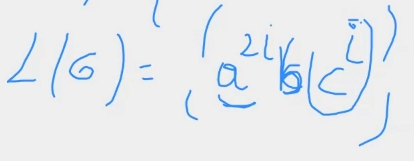 L(G) = (a^{2i} b c^i)